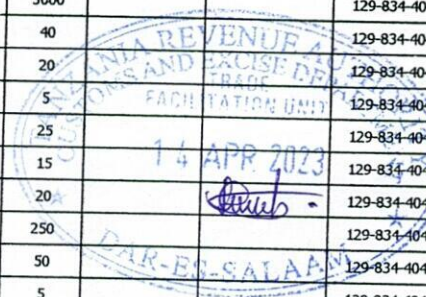 5000 129-834-40
40 129-834-40
20 129-834-40
5 129-834-40
25 129-834-40
15 129-834-404
20 129-834-404
250 129-834-404
50 129-834-404
5 129-834-404
TANZANIA REVENUE AUTHORITY
CUSTOMS AND EXCISE DEPARTMENT
TRADE
FACILITATION UNIT
14 APR 2023
DAR-ES-SALAAM